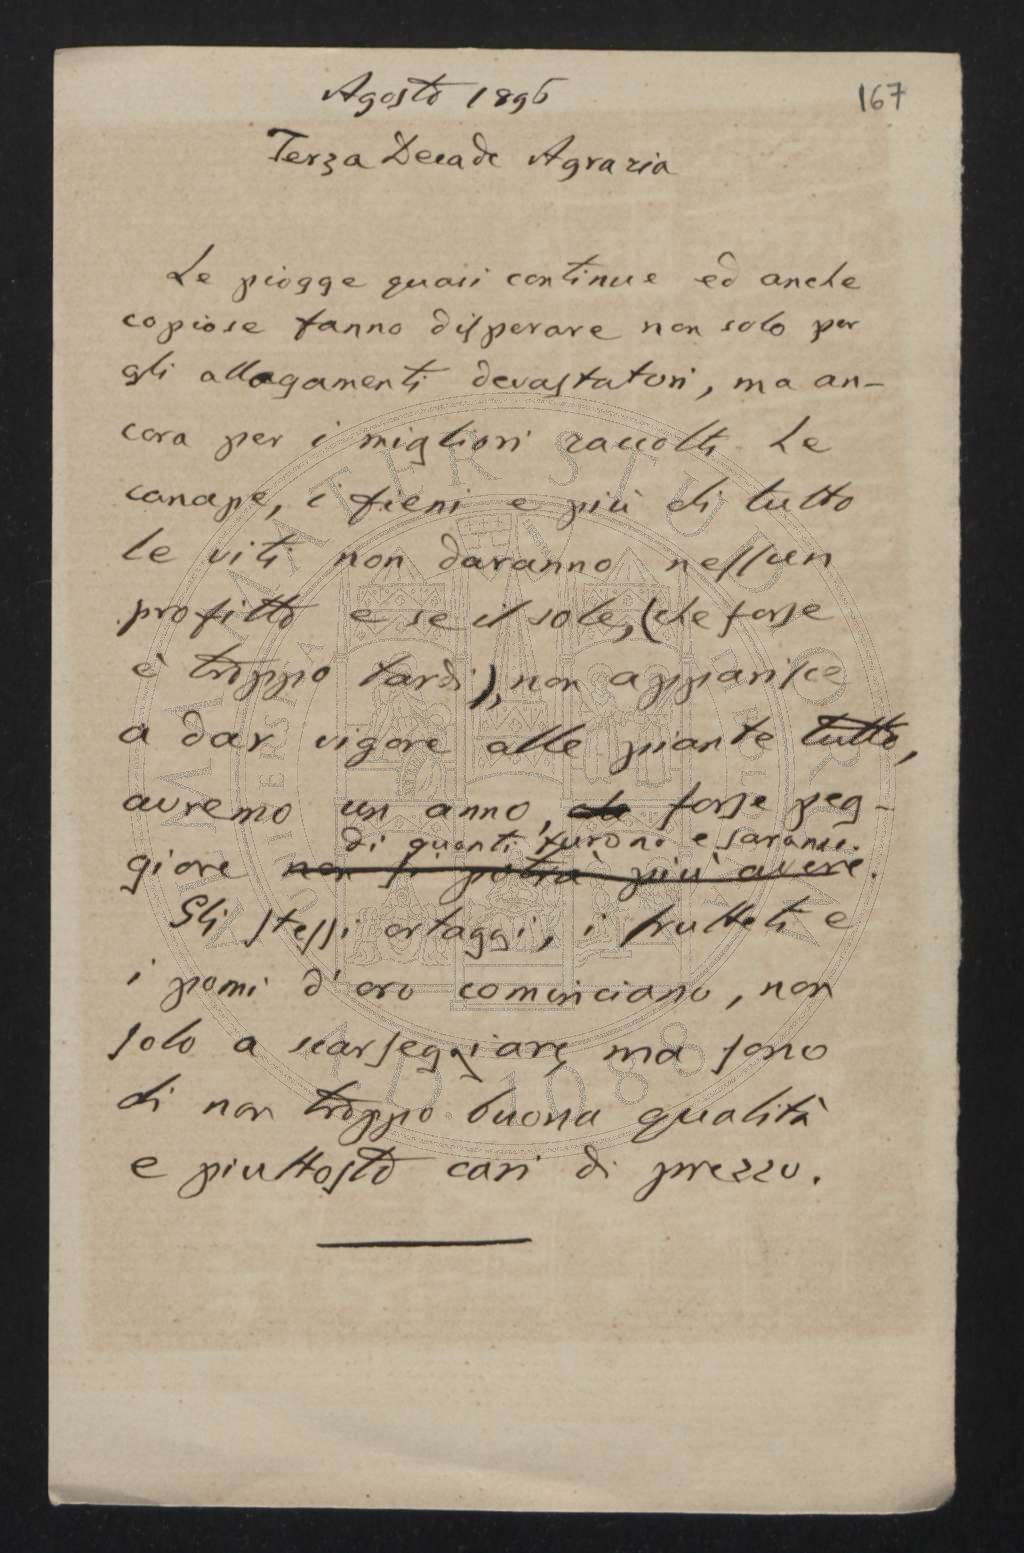 167
Agosto 1896
Terza Decade Agraria
Le piogge quasi continue ed anche
copiose fanno disperare non solo per
gli allagamenti devastatori, ma an-
cora per i migliori raccolti. Le
canape, i fieni e più di tutto
le viti non daranno nessun
profitto e se il sole, (che forse
è troppo tardi), non apparisce
a dar vigore alle piante tutto,
avremo un anno, forse peg-
di quanti furono e saranno.
giore non si potrà più avere.
Gli stessi ortaggi, i frutteti e
i pomi d'oro cominciano, non
solo a scarseggiare, ma sono
di non troppo buona qualità
e piuttosto cari di prezzo.
ALMA MATER STUDIORUM
A.D. 1088